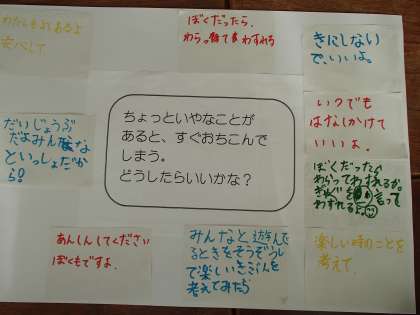 わたしもよくあるよ
安心して。
ぼくだったら、
わらって わすれる
きにしない
で、いいよ。
いつでも
はなしかけて
いいよ。
だいじょうぶ
だよみんな
といっしょだか
ら!
ちょっといやなことが
あると、すぐおちこんで
しまう。
どうしたらいいかな?
ぼくだったら
わらってわすれるか。
笑って
わすれるよ
あんしんしてください
ぼくもですよ。
みんなと遊んで
るときをそうぞうし
て楽しいきぶんを
考えてみたら
楽しい時のことを
考えて。